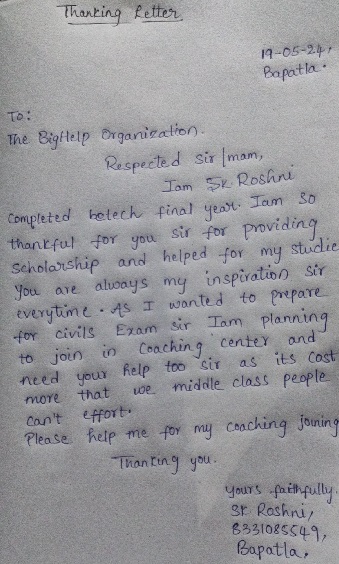 Thanking Letter
19-05-24,
Bapatla.
To:
The BigHelp Organization.
Respected sir/mam,
Iam SK. Roshni
completed betech final year. Iam so
thankful for you sir for providing
scholarship and helped for my studie
You are always my inspiration sir
everytime. As I wanted to prepare
for civils Exam sir Iam planning
to join in coaching center and
need your help too sir as its cost
more that we middle class people
can't effort.
Please help me for my coaching joining
Thanking you.
yours faithfully.
SK Roshni,
8331085549,
Bapatla,